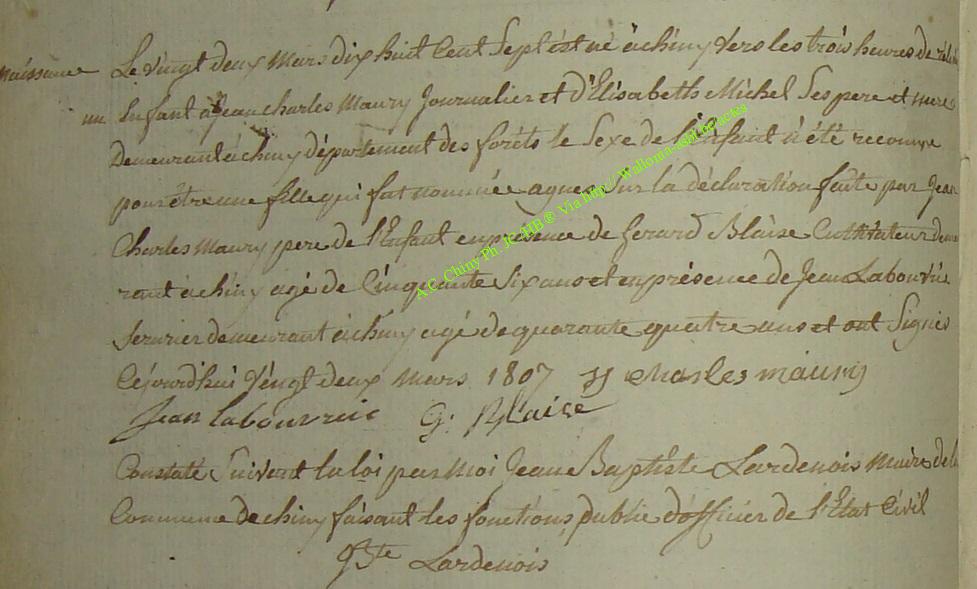 Naissance Le vingt deux Mars dix huit Cent Sept est né à chiny vers les trois heures de
un Enfant a Jean charles Maury Journalier et d'Elisabeths Michel Ses pere et mere
Demeurant à chiny département des forêts le Sexe de l'Enfant à été reconnue
pour être une fille qui fut nommée agnes Sur la déclaration faite par Jean
Charles Maury pere de l'Enfant en présence de Gerard Blaise Cultivateur demeu
rant à chiny agé de Cinquante Six ans et en présence de Jean Labouvrie
Serurier demeurant à chiny agé de quarante quatre ans et ont Signés
Cejourd'hui vingt deux Mars 1807 charles mauris
Jean labouvrie G: Blaise
Constaté Suivant la loi par moi Jean Baptiste Lardenois Maire de la
Commune de chiny faisant les fonctions public d'officier de l'Etat Civil
JBte Lardenois
A.C. Chiny Ph. JC-HB® Via http://Wallonia-asbl.be/actes